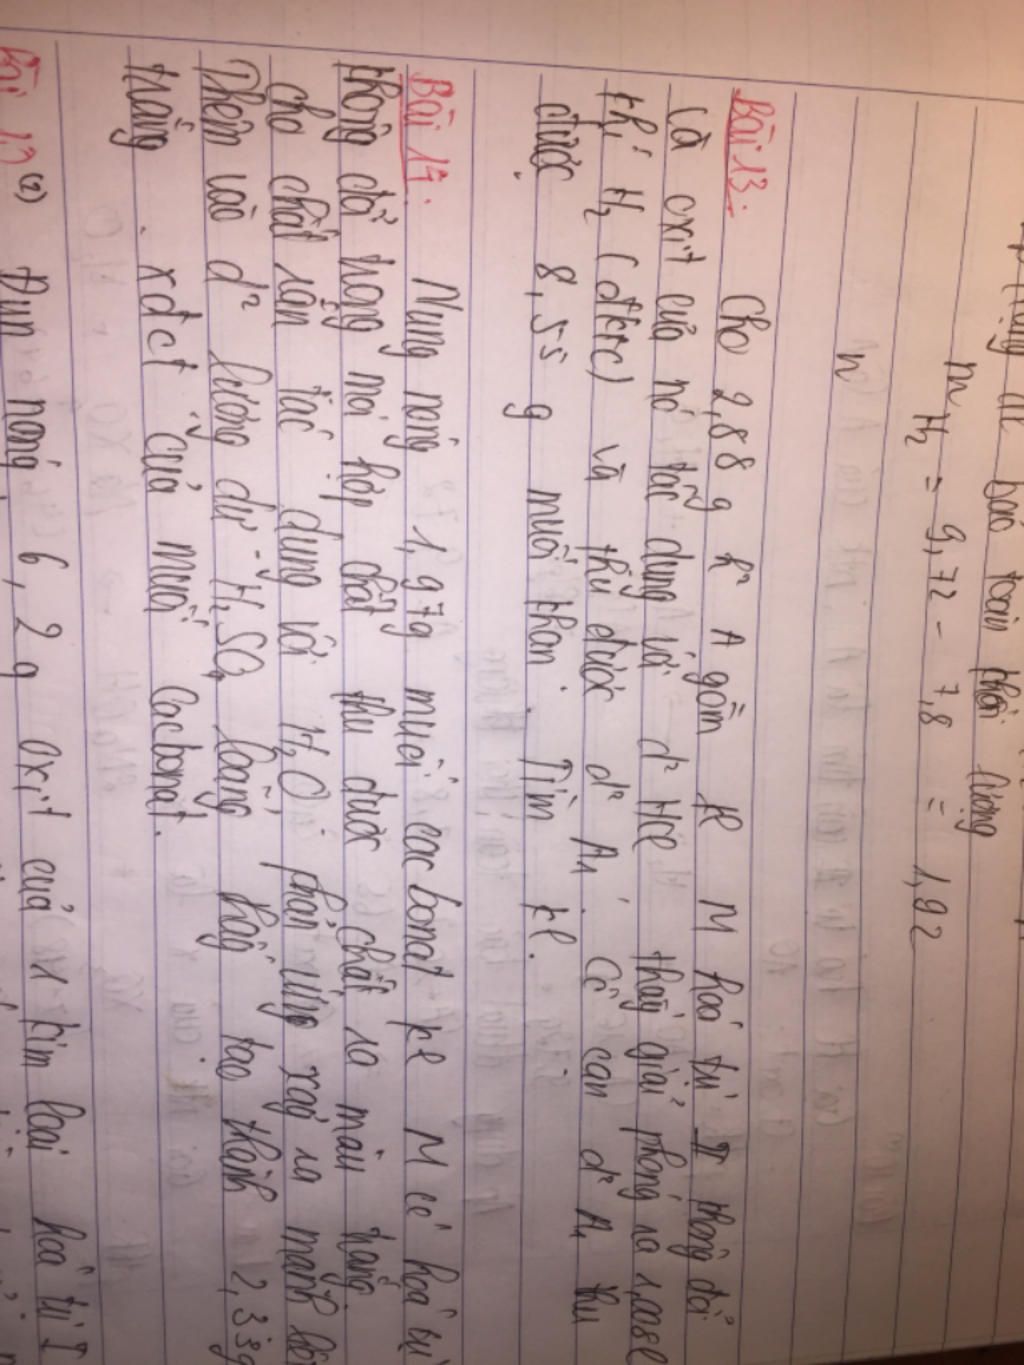 bảo toàn khối lượng
m H₂ = 9,72 - 7,8 = 1,92
n
Bài 13: Cho 2,88 g h² A gồm kl M hoá trị II không đổi
và oxit của nó tác dụng với d² HCl thấy giải phóng ra 1,008l
khí H₂ (đktc) và thu được d² A₁. Cô cạn d² A₁ thu
được 8,55 g muối khan. Tìm kl.
Bài 14: Nung nóng 1,97g muối cacbonat kl M có hoá trị
không đổi trong mọi hợp chất thu được chất rắn màu trắng.
cho chất rắn tác dụng với H₂O phản ứng xảy ra mãnh
Thêm vào d² lượng dư H₂SO₄ loãng thấy tạo thành 2,33g
trắng. xđ ct của muối Cacbonat.
(2) Đun nóng 6,2 g oxit của 1 kim loại hoá trị I